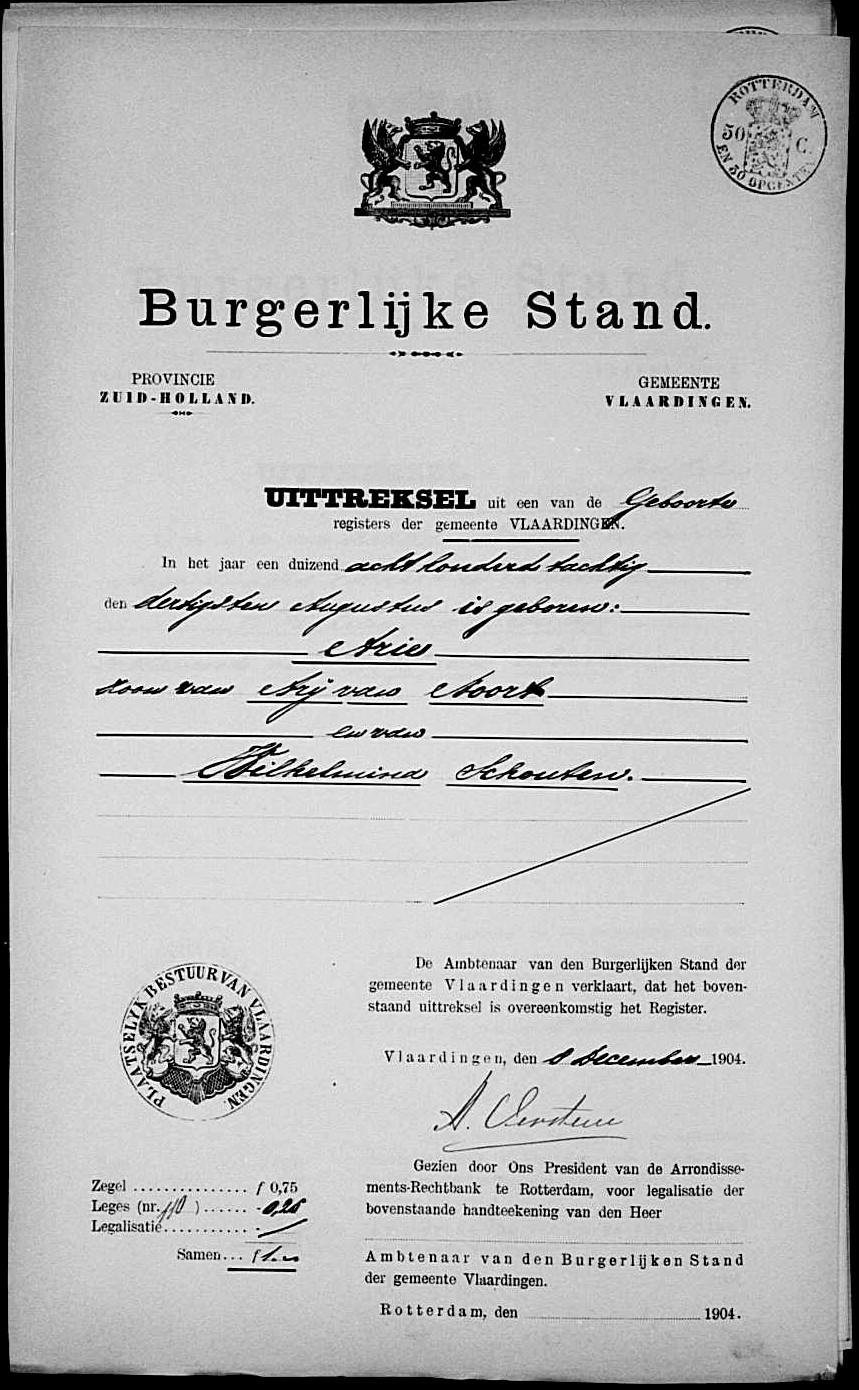 ROTTERDAM
50 C.
EN 50 OPCENTEN
Burgerlijke Stand.
PROVINCIE
ZUID-HOLLAND.
GEMEENTE
VLAARDINGEN.
UITTREKSEL uit een van de Geboorte
registers der gemeente VLAARDINGEN.
In het jaar een duizend acht honderd tachtig
den dertigsten Augustus is geboren:
Arie
zoon van Arij van Noort
en van
Wilhelmina Schouten.
PLAATSELYK BESTUUR VAN VLAARDINGEN.
De Ambtenaar van den Burgerlijken Stand der
gemeente Vlaardingen verklaart, dat het boven-
staand uittreksel is overeenkomstig het Register.
Vlaardingen, den 8 December 1904.
A.
Gezien door Ons President van de Arrondisse-
ments-Rechtbank te Rotterdam, voor legalisatie der
bovenstaande handteekening van den Heer
Ambtenaar van den Burgerlijken Stand
der gemeente Vlaardingen.
Rotterdam, den 1904.
Zegel ............... f 0,75
Leges (nr. ) ...... - 0,25
Legalisatie ............ -
Samen... f 1.